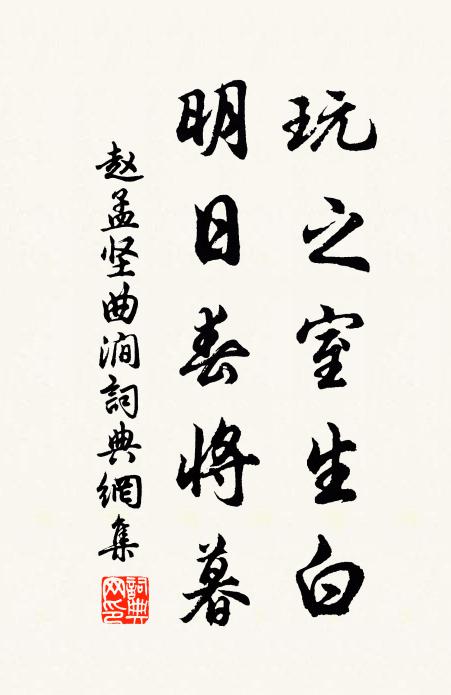 玩之室生白
明日春将暮
赵孟坚曲澗詞典網集
詞典網印